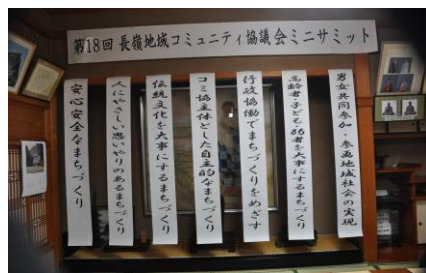 第18回 長嶺地域コミュニティ協議会ミニサミット
男女共同参加・参画地域社会の実現
高齢者・子ども・弱者を大事にするまちづくり
行政協働でまちづくりをめざす
コミ協主体とした自主的なまちづくり
伝統文化を大事にするまちづくり
人にやさしい思いやりのあるまちづくり
安心安全なまちづくり